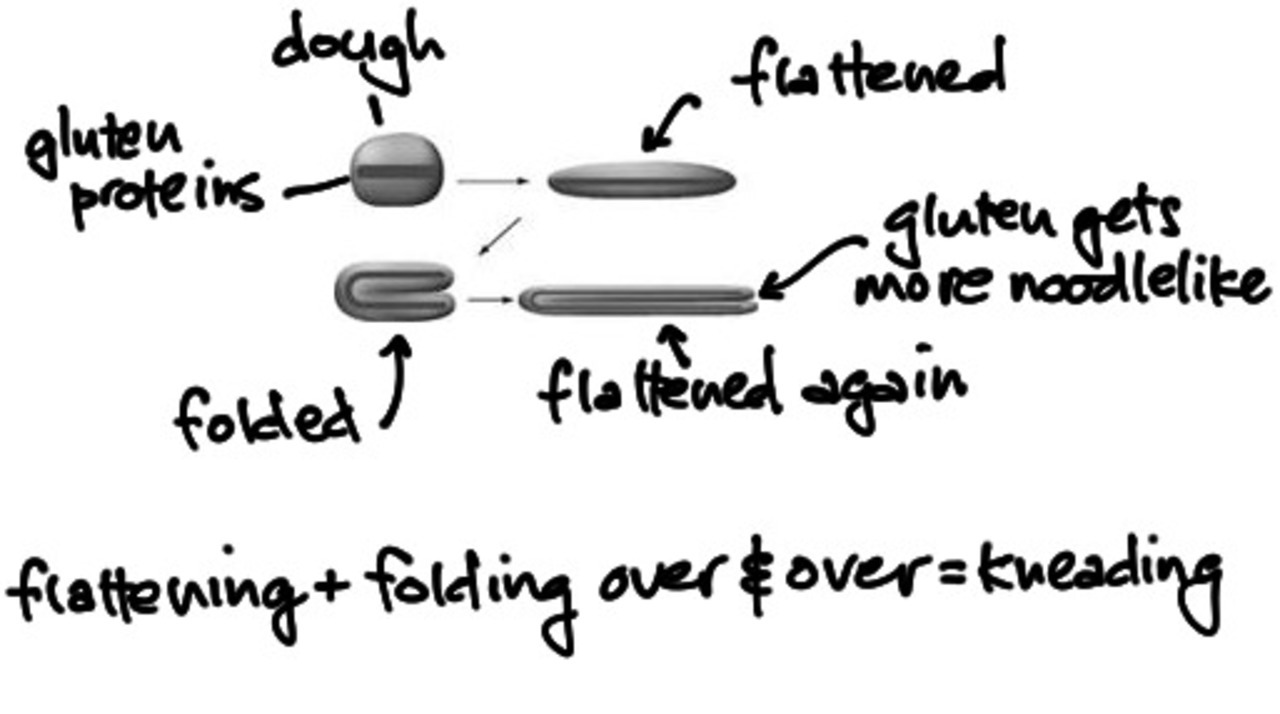 dough
flattened
gluten
proteins
gluten gets
more noodlelike
folded
flattened again
flattening + folding over & over = kneading